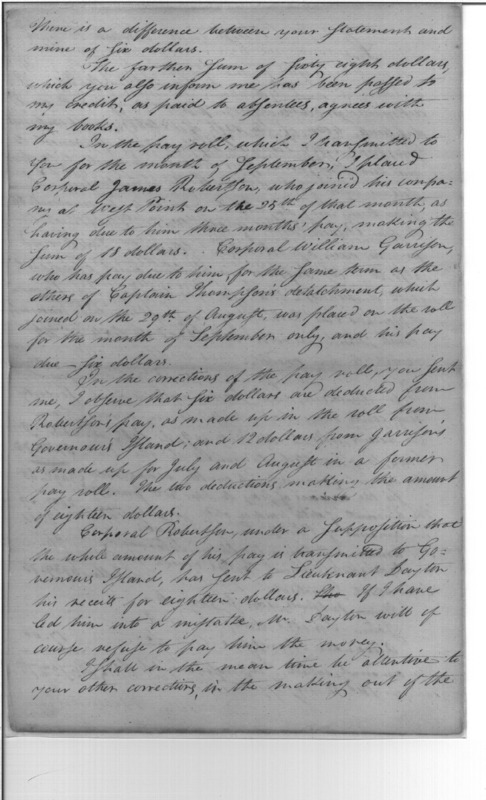 there is a difference between your statement and
mine of six dollars.
The farther sum of sixty eight dollars,
which you also inform me has been passed to
my credit, as paid to absentees, agrees with
my books.
In the pay roll, which I transmitted to
you for the month of September, I placed
Corporal James Robertson, who joined his compa-
ny at West Point on the 25th of that month, as
having due to him three months' pay, making the
sum of 18 dollars. Corporal William Garrison,
who has pay due to him for the same term as the
others of Captain Thompson's detatchment, which
joined on the 29th of August, was placed on the roll
for the month of September only, and his pay
due – six dollars.
In the corrections of the pay roll, you sent
me, I observe that six dollars are deducted from
Robertson's pay, as made up in the roll from
Governour's Island; and 12 dollars from Garrison's
as made up for July and August in a former
pay roll. The two deductions making the amount
of eighteen dollars.
Corporal Robertson, under a supposition that
the whole amount of his pay is transmitted to Go-
vernour's Island, has sent to Lieutenant Dayton
his receipt for eighteen dollars. If I have
led him into a mistake, Mr. Dayton will of
course refuse to pay him the money.
I shall in the mean time be attentive to
your other corrections, in the making out of the